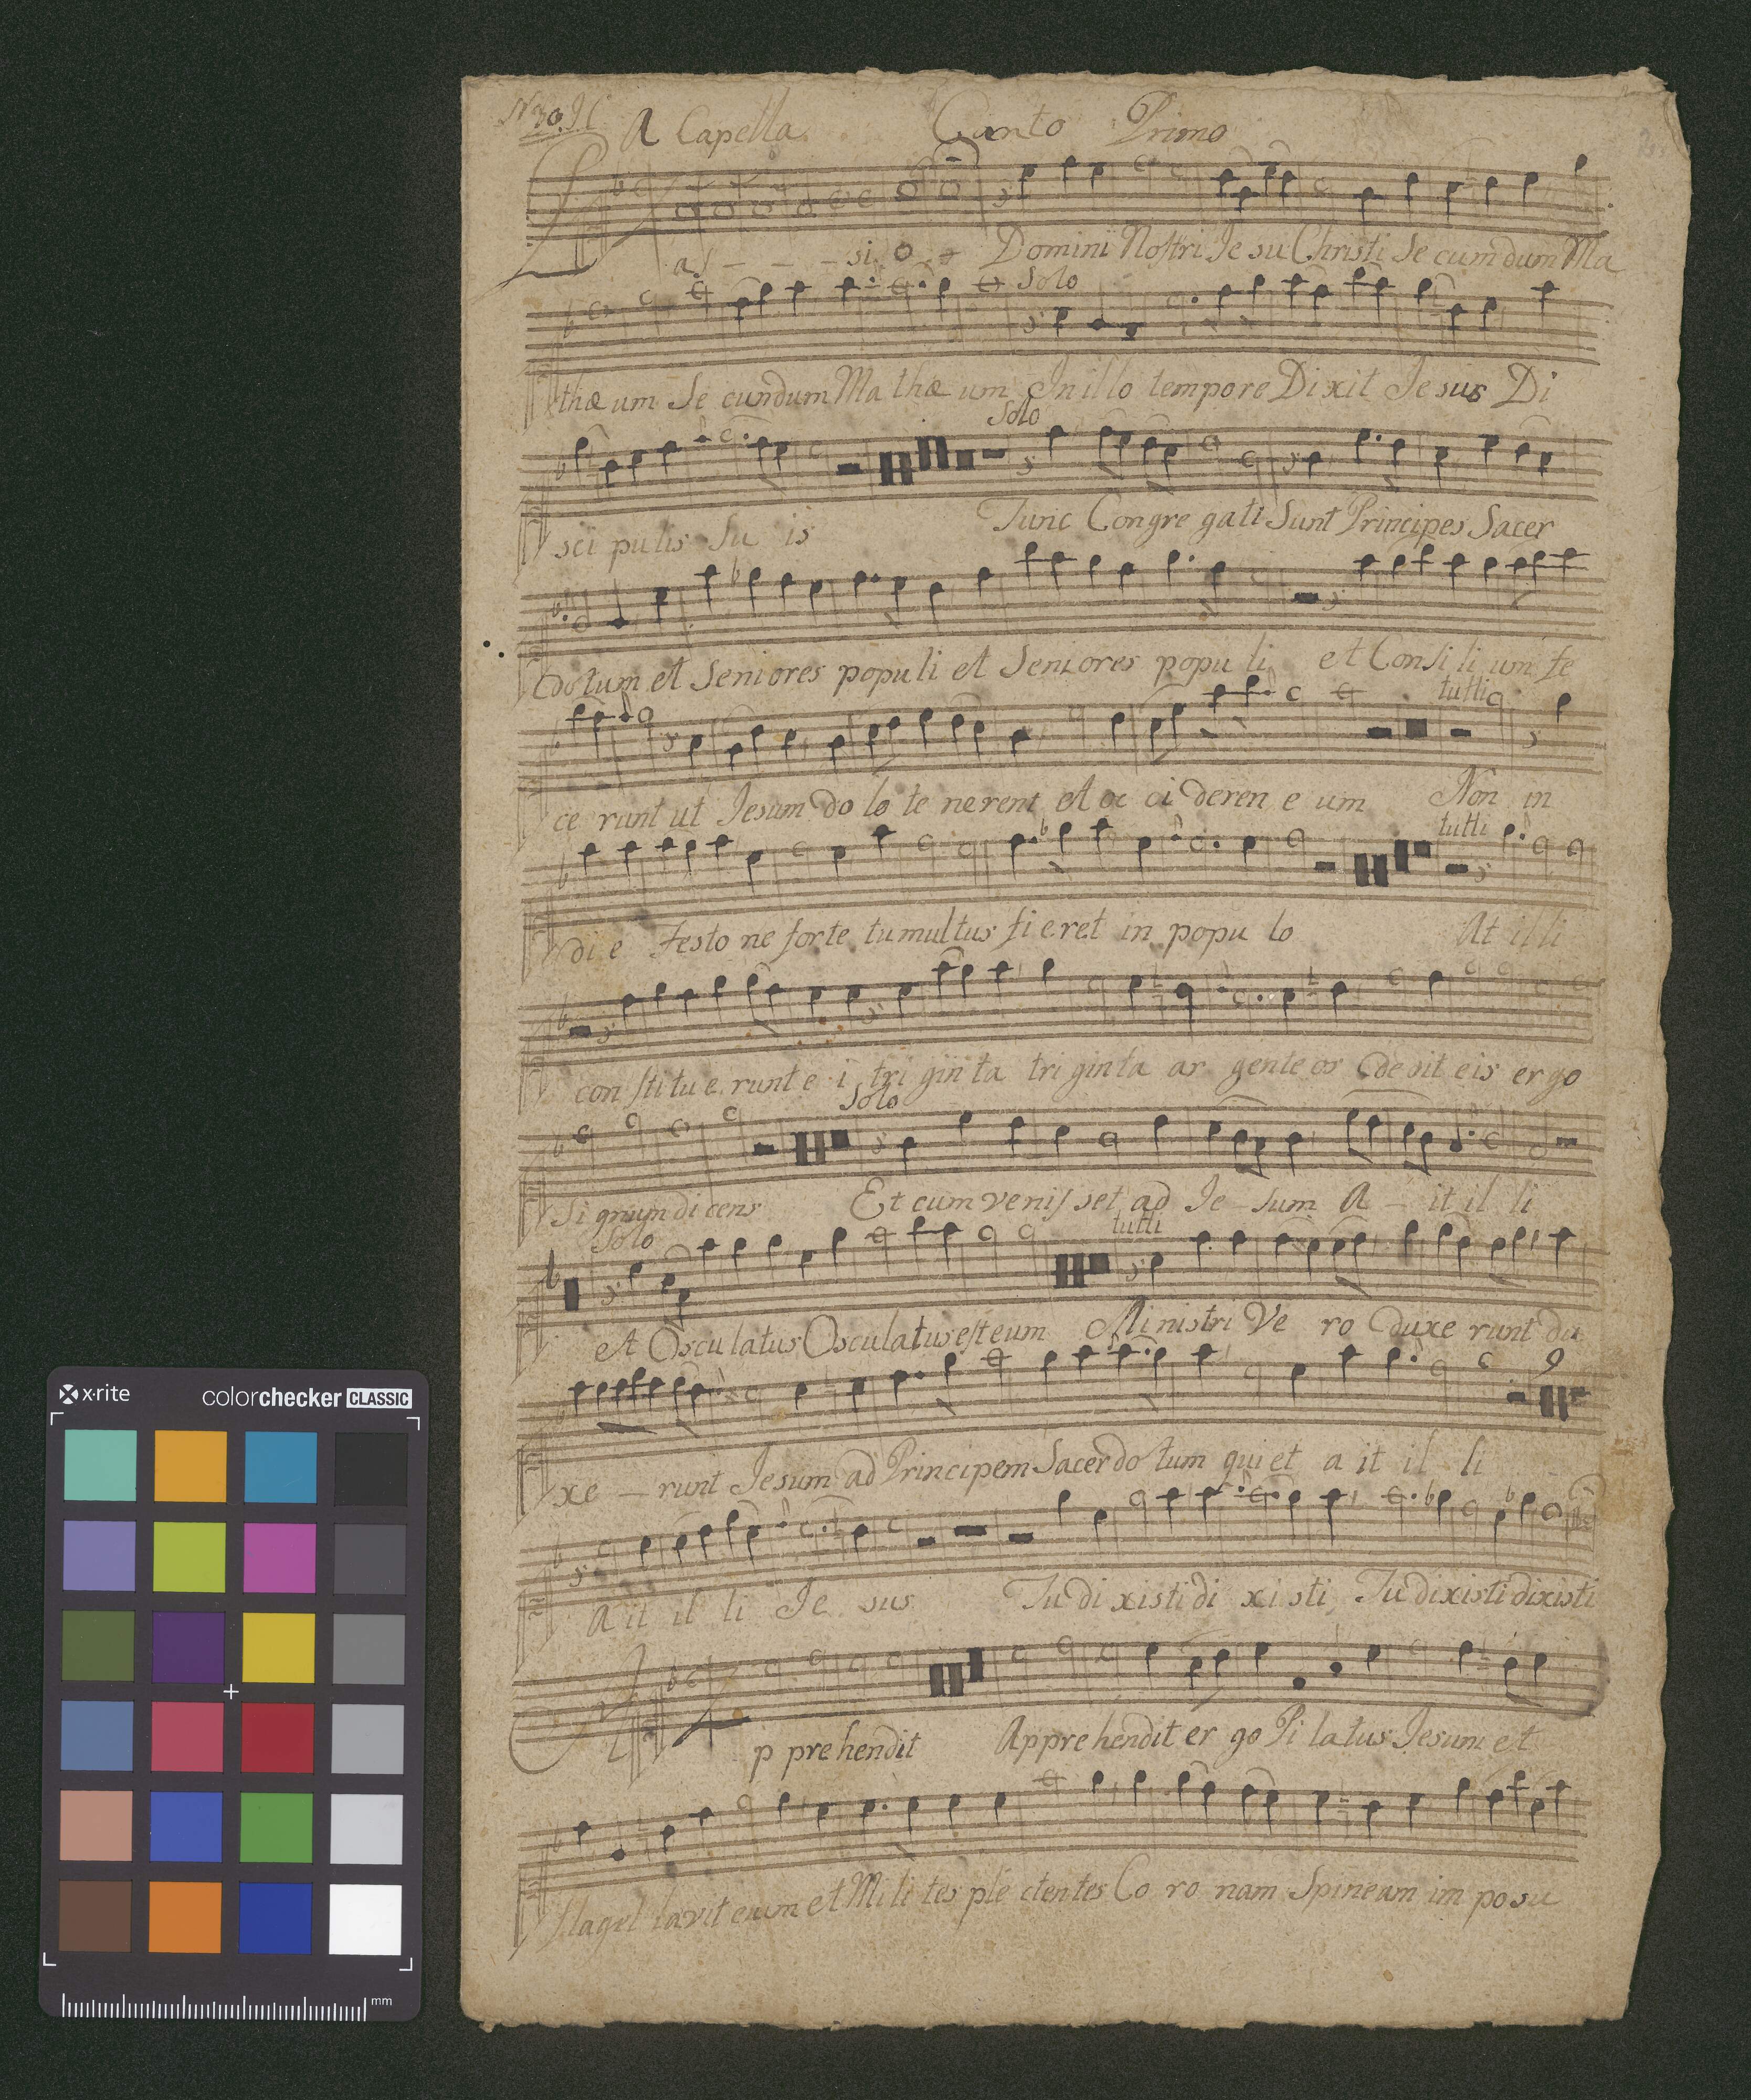 A Capella Canto Primo
as - - - si o Domini Nostri Je su Christi Se cum dum Ma
Solo
thæ um Se cundum Ma thæ um In illo tempore Dixit Je sus Di
Solo
sci pulis Su is Tunc Congre gati Sunt Principes Sacer
dotum et Seniores popu li et Seniores popu li et Consi li um fe
tutti
ce runt ut Jesum do lo te nerent et oc ci deren e um Non in
tutti
di e festo ne forte tumultus fi eret in popu lo At illi
con stitu e runt e i tri gin ta tri ginta ar gente os dedit eis ergo
Solo
Si gnum di cens Et cum venis set ad Je - sum A - it il li
Solo tutti
et Oscu latus Osculatus est eum Ministri Ve ro duxe runt du
9
xe - runt Jesum ad Principem Sacer do tum qui et a it il li
A it il li Je sus Tu di xisti di xi sti Tu dixisti dixisti
p pre hendit Appre hendit er go Pi latus Jesum et
flagel lavit eum et Mili tes ple ctentes Co ro nam Spineam im po su
x·rite colorchecker CLASSIC
mm